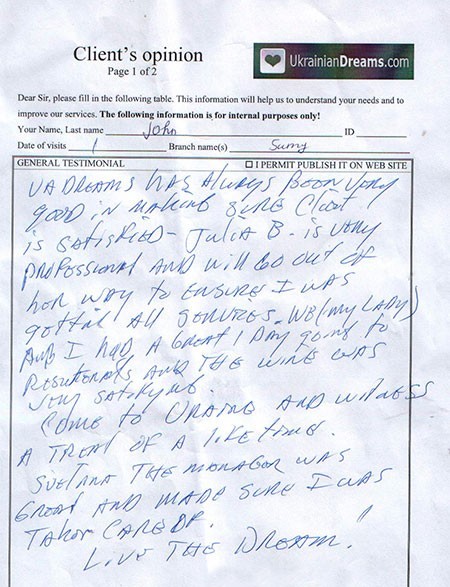 Client's opinion
Page 1 of 2
UkrainianDreams.com
Dear Sir, please fill in the following table. This information will help us to understand your needs and to
improve our services. The following information is for internal purposes only!
Your Name, Last name John ID
Date of visits 1 Branch name(s) Sumy
GENERAL TESTIMONIAL ☐ I PERMIT PUBLISH IT ON WEB SITE
UA DREAMS HAS Always Been very
good in making sure
is SATISFIED - Julia B. is very
professional AND will go out of
her way to ENSURE I WAS
All services. WE (my LADY)
AND I had A GREAT 1 DAY going to
AND THE WINE WAS
very
Come to AND
A TREAT OF A like time.
THE MANAGER WAS
Great AND MADE SURE I WAS
Taken CARE OF.
LIVE THE DREAM!